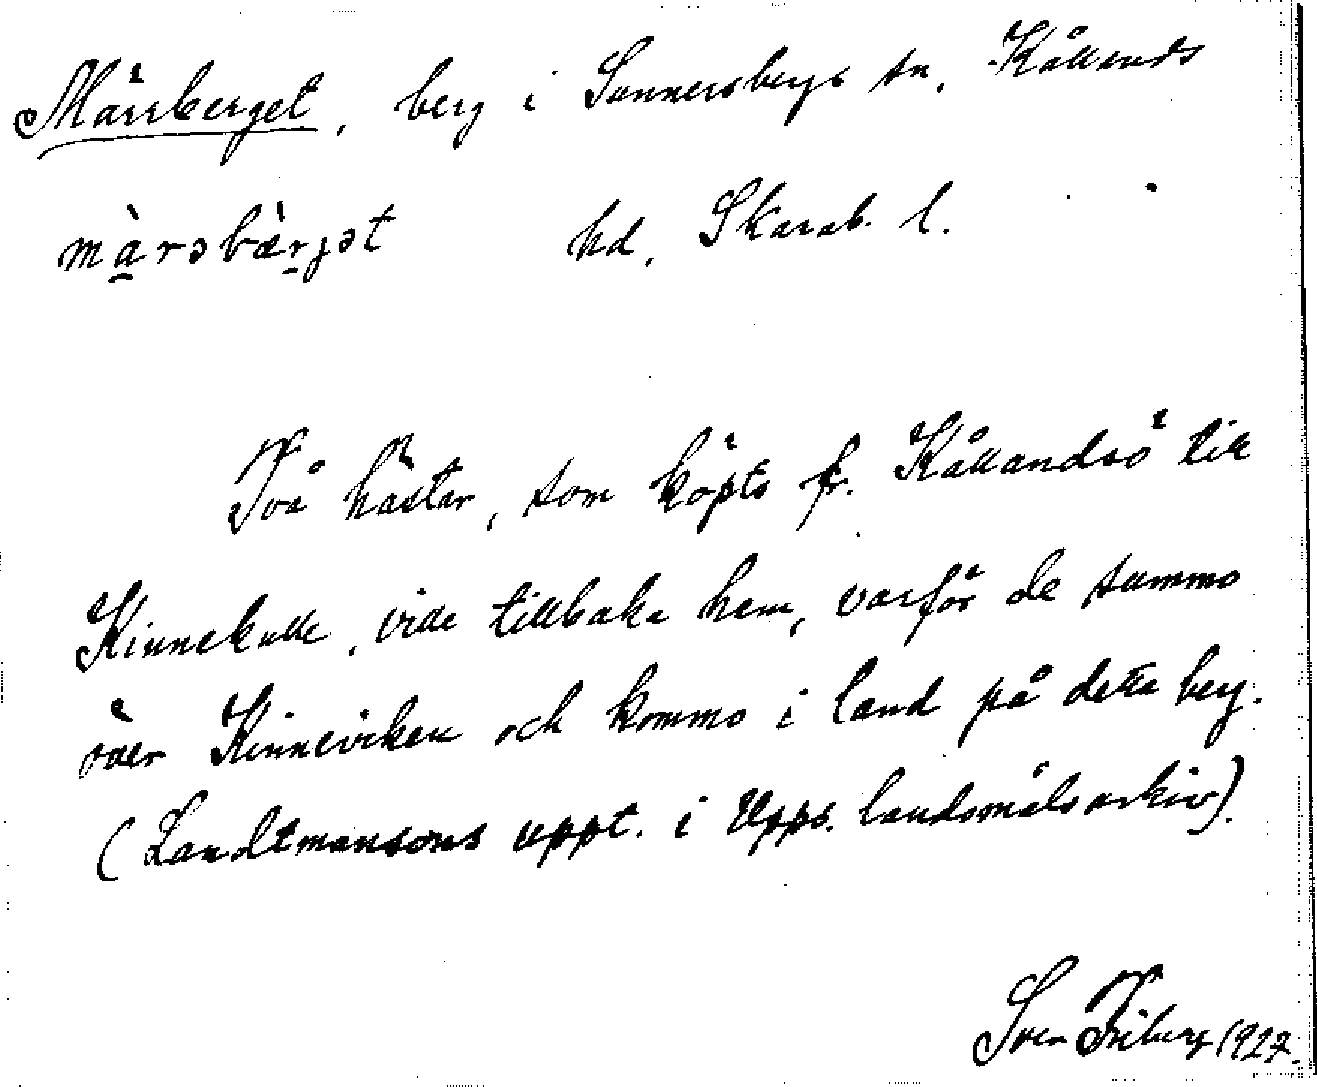 Märrberget, berg i Sunnersbergs sn, Kållands
màrəbæ̀rjət hd, Skarab. l.
Två hästar, som köpts fr. Kållandsö till
Kinnekulle, ville tillbaka hem, varför de summo
över Kinneviken och kommo i land på detta berg.
(Landtmansons uppt. i Upps. landsmålsarkiv).
Sven Friberg 1927.